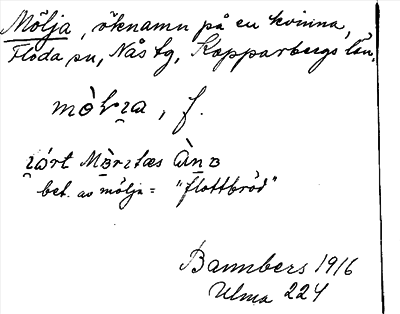 Mölja, öknamn på en kvinna,
Floda sn, Nås tg, Kopparbergs län.
f.
bet. av mölja = "flottbröd"
Bannbers 1916
Ulma 224